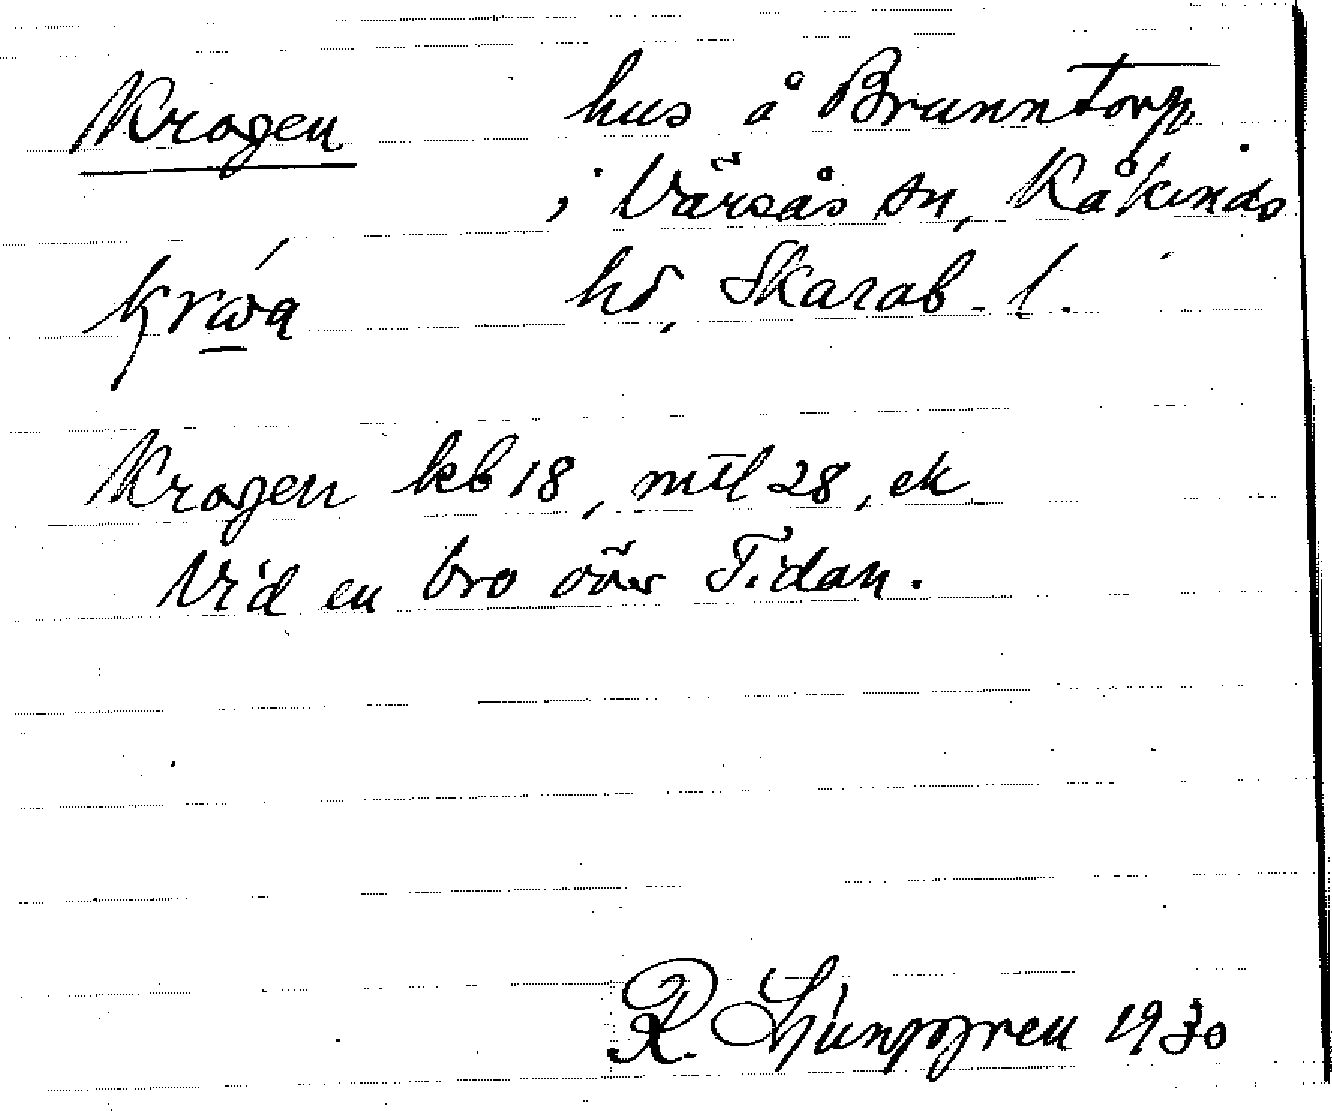 Krogen hus å Brunntorp
i Värsås sn, Kåkinds
krωa hd, Skarab. l.
Krogen kb 18, mtl 28, ek
Vid en bro över Tidan.
R. Ljunggren 1930